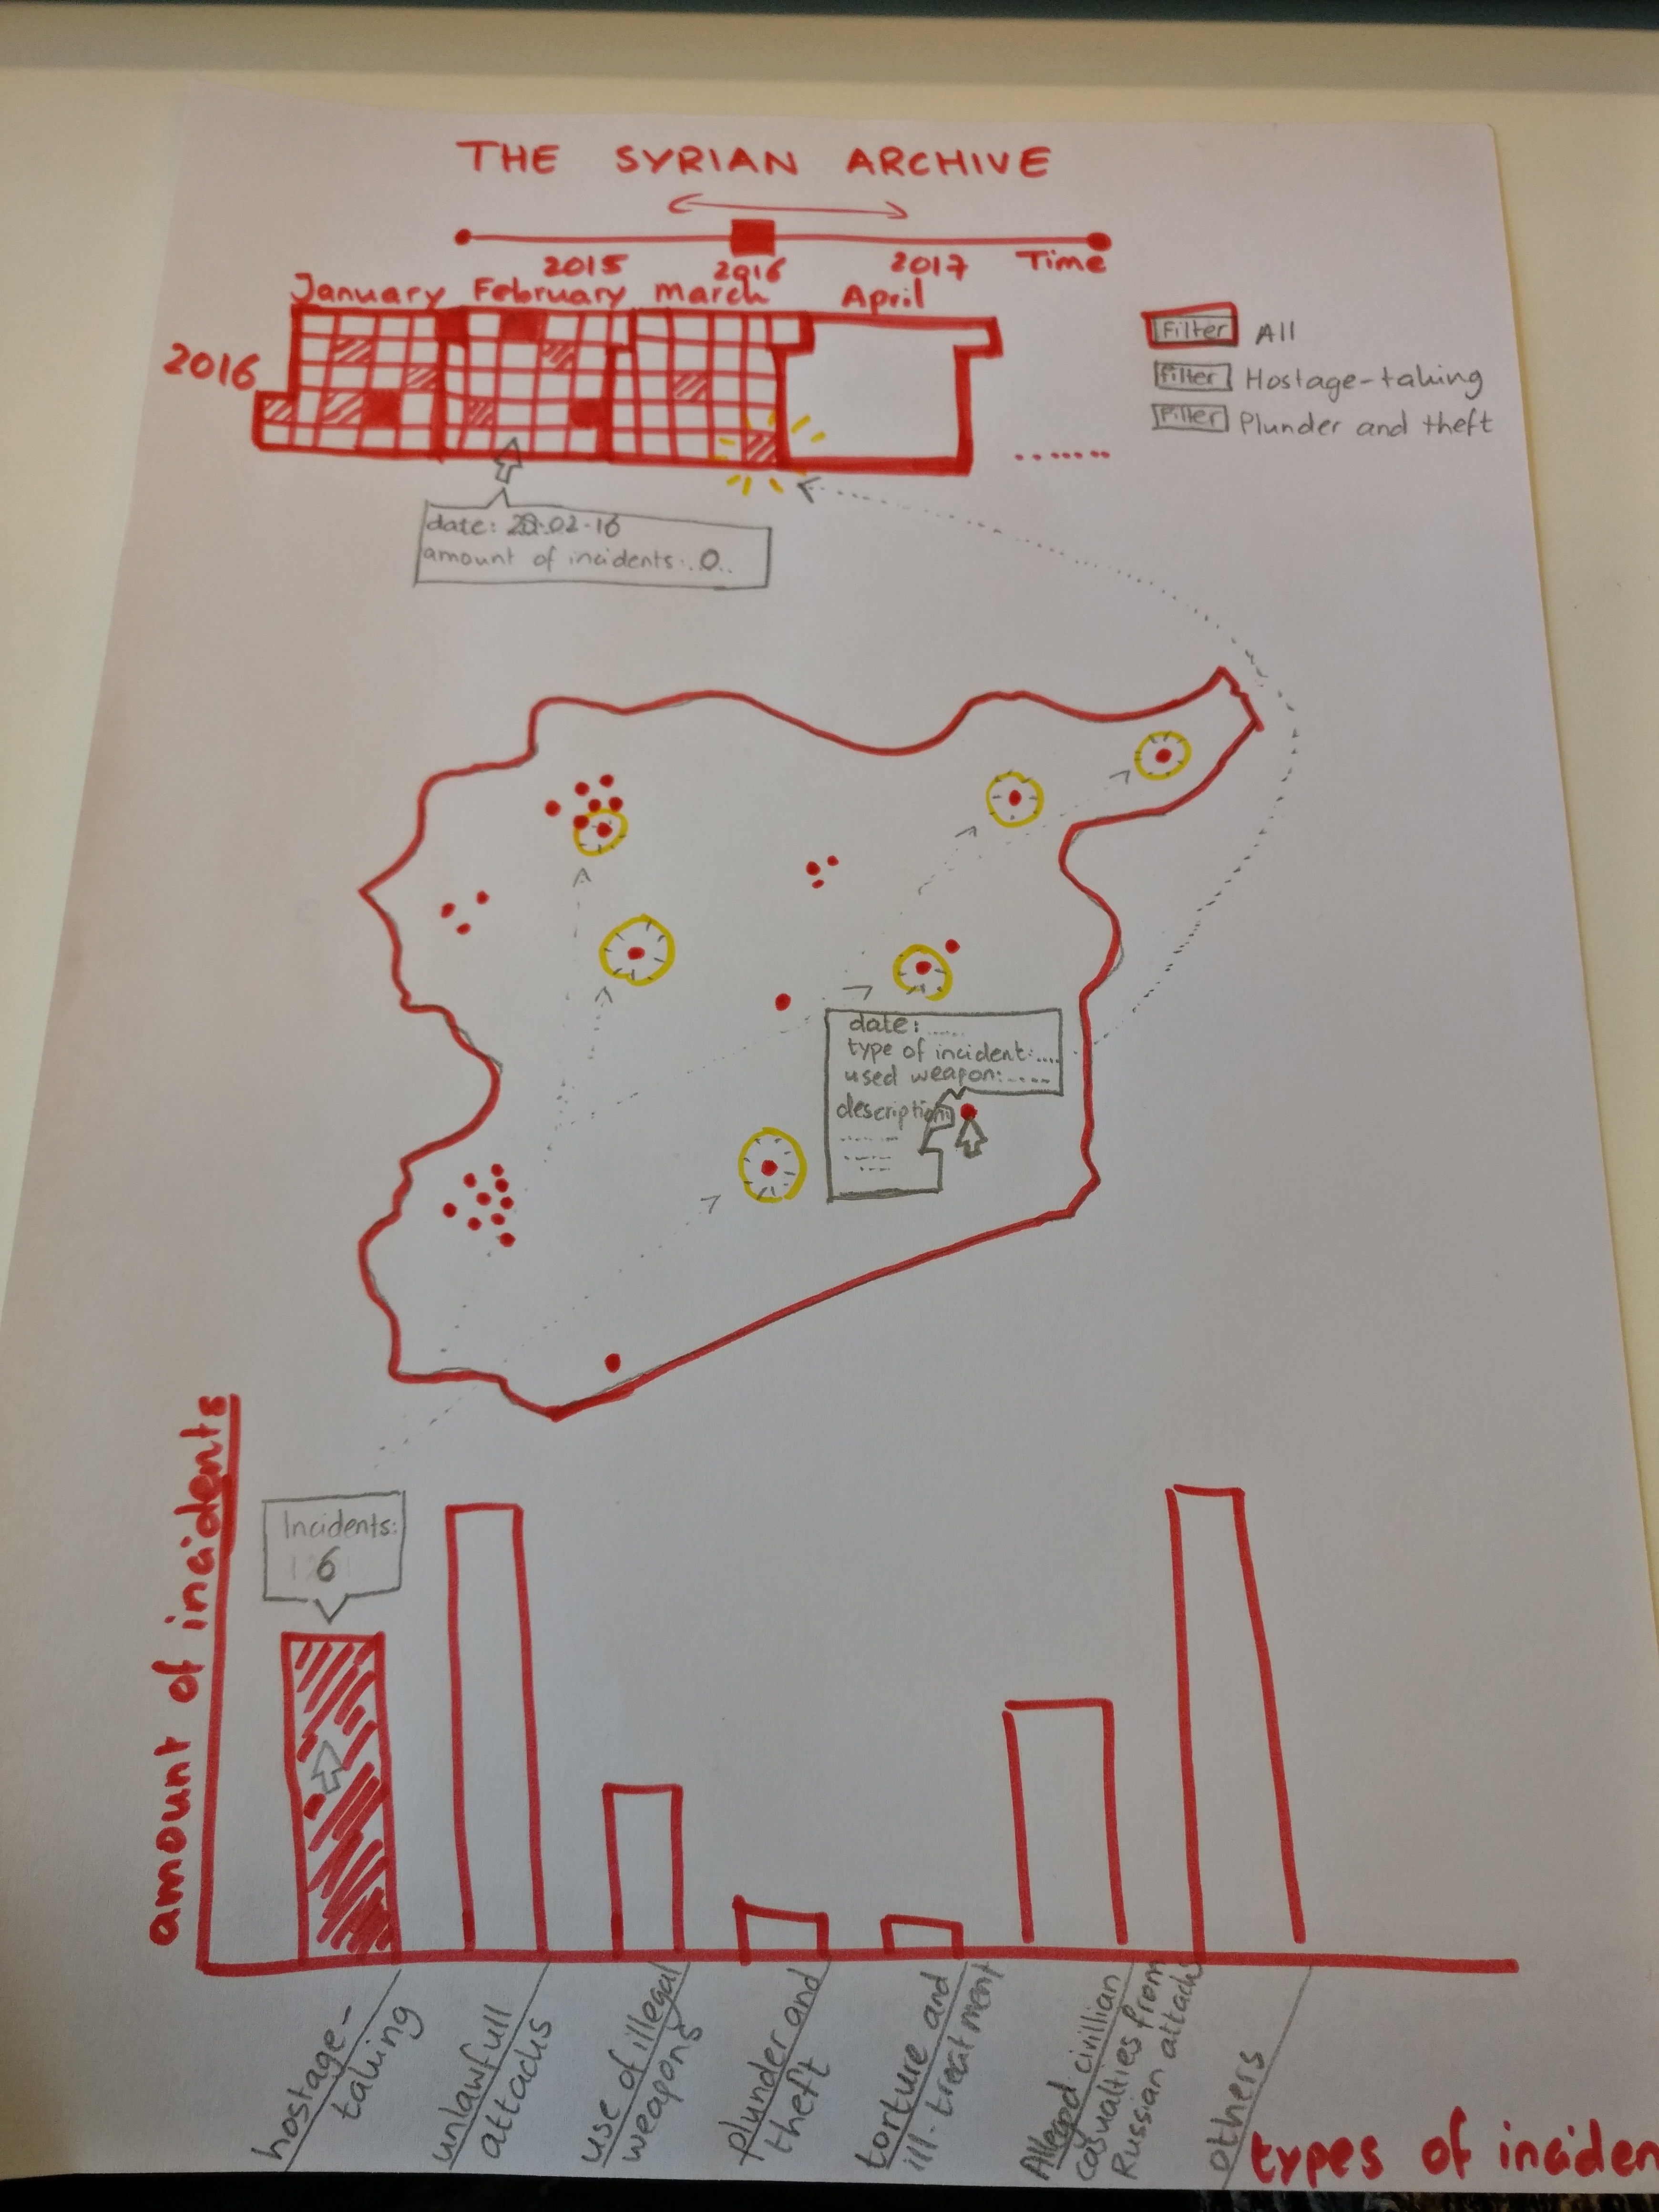 THE SYRIAN ARCHIVE
2015 2016 2017 Time
January February march April
2016
Filter All
Filter Hostage-taking
Filter Plunder and theft
date: 28.02.16
amount of incidents: 0
date: .....
type of incident: ....
used weapon: .....
description
amount of incidents
Incidents:
6
hostage-
taking
unlawfull
attacks
use of illegal
weapons
plunder and
theft
torture and
ill-treatment
Alleged civillian
casualties from
Russian attacks
others
types of inciden